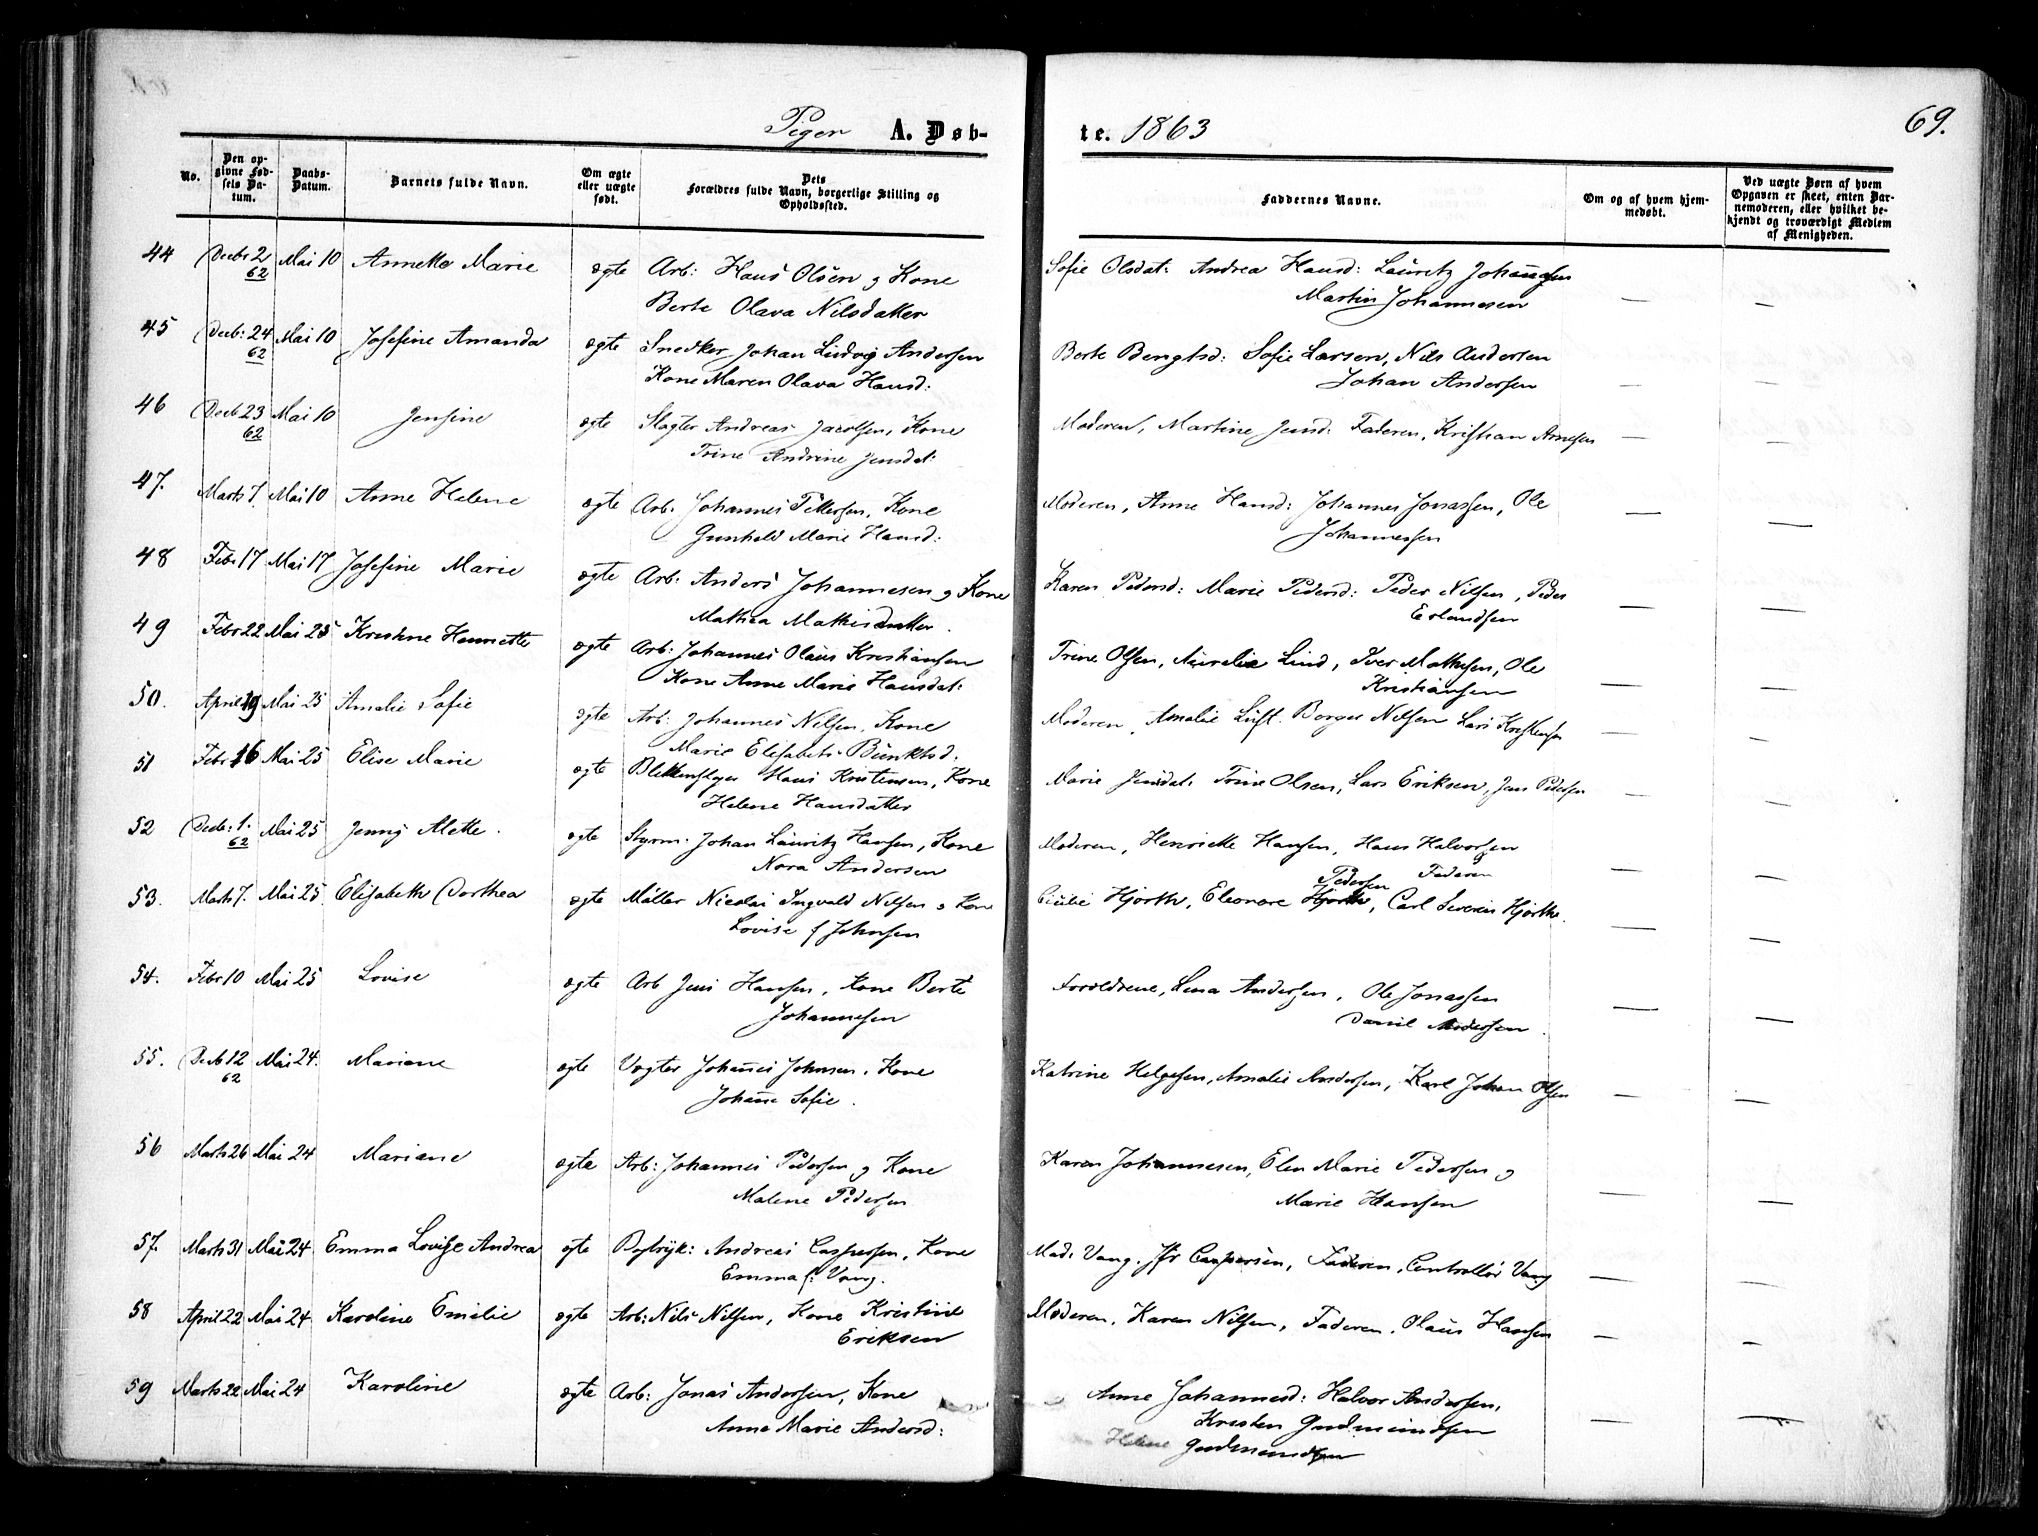 Piger A. Døb-
te. 1863
69.
No.
Den op-
givne Fød-
sels Da-
tum.
Daabs-
Datum.
Barnets fulde Navn.
Om ægte
eller uægte
født.
Dets
Forældres fulde Navn, borgerlige Stilling og
Opholdssted.
Faddernes Navne.
Om og af hvem hjem-
medøbt.
Ved uægte Børn af hvem
Opgaven er skeet, enten Bar-
nemoderen, eller hvilket be-
kjendt og troværdigt Medlem
af Menigheden.
44 Decbr 2 62 Mai 10 Annette Marie ægte Arb: Hans Olsen og Kone
Berte Olava Nilsdatter
Sofie Olsdat: Andrea Hansd: Lauritz Johannesen
Martin Johannesen
45 Decb: 24 62 Mai 10 Josefine Amanda ægte Snedker Johan Ludvig Andersen
Kone Maren Olava Hansd:
Berte Bengtsd: Sofie Larsen, Nils Andersen
Johan Andersen
46 Decb 23 62 Mai 10 Jensine ægte Slagter Andreas Jacobsen, Kone
Trine Andrine Jensdat:
Moderen, Martine Jensd: Faderen, Kristian Arnesen
47. Marts 7. Mai 10 Anne Helene ægte Arb. Johannes Pettersen, Kone
Gunhild Marie Hansd:
Moderen, Anne Hansd: Johannes Jonassen, Ole
Johannessen
48 Febr 17 Mai 17 Josefine Marie ægte Arb: Anders Johannesen og Kone
Mathea Mathisdatter.
Karen Pedersd: Marie Pedersd: Peder Nilsen, Peder
Erlandsen
49 Febr 22 Mai 25 Kristine Henriette ægte Arb: Johannes Olaus Kristiansen
Kone Anne Marie Hansdat:
Trine Olsen, Aurelia Lind, Iver Mathisen, Ole
Kristiansen
50. April 19 Mai 25 Amalie Sofie ægte Arb: Johannes Nilsen, Kone
Marie Elisabeth
Moderen, Amalie Borger Nilsen Lars Kristensen
51 Febr 16 Mai 25 Elise Marie ægte Blikkenslager Hans Kristensen, Kone
Helene Hansdatter
Marie Jensdat: Trine Olsen, Lars Eriksen, Jens Pedersen
52 Decb: 1. 62 Mai 25 Jenny Alette. ægte Styrm. Johan Lauritz Hansen, Kone
Nora Andersen
Moderen, Henriette Hansen, Hans Halvorsen
Faderen
53. Marts 7. Mai 25 Elisabeth Dorthea ægte Møller Nicolai Ingvald Nilsen og Kone
Lovise f Johnsen
Cicilie Hjorth, Eleonore Hjorth Pedersen, Carl Severin Hjorth.
54. Febr 10 Mai 25 Lovise ægte Arb Jens Hansen, Kone Berte
Johannesen
Forældrene, Lena Andersen, Ole Jonassen
Daniel Andersen.
55. Decb 12 62 Mai 24. Mariane ægte Vogter Johanes Johnsen, Kone
Johanne Sofie.
Katrine Helgesen, Amalie Andersen, Karl Johan Olsen
56 Marts 26 Mai 24 Mariane ægte Arb: Johannes Pedersen og Kone
Malene Pedersen
Karen Johannesen, Elen Marie Pedersen og
Marie Hansen
57. Marts 31 Mai 24 Emma Lovise Andrea ægte Andreas Caspersen, Kone
Emma f: Vang.
Mad: Vang, Jfr Caspersen, Faderen, Controllør Vang
58 April 22 Mai 24 Karoline Emilie ægte Arb: Nils Nilsen, Kone Kristine
Eriksen
Moderen, Karen Nilsen, Faderen, Olaus Hansen
59 Marts 22 Mai 24 Karoline ægte Arb: Jonas Andersen, Kone
Anne Marie Andersd:
Anne Johannesd: Halvor Andersen,
Kristen Gudmundsen
Helene Gudmundsen